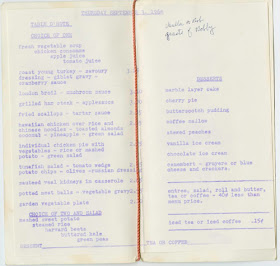 THURSDAY SEPTEMBER 1, 1960
TABLE D'HOTE
CHOICE OF ONE
fresh vegetable soup
chicken consomme
apple juice
tomato juice
roast young turkey - savoury
dressing - giblet gravy -
cranberry sauce
london broil - mushroom sauce
grilled ham steak - applesauce
fried scallops - tartar sauce
hawaiian chicken over rice and
chinese noodles - toasted almonds
coconut - pineapple - green salad
individual chicken pie with
vegetables - rice or mashed
potato - green salad
tunafish salad - tomato wedge
potato chips - olives - russian dressing
garden vegetable plate
CHOICE OF TWO AND SALAD
mashed sweet potato
steamed rice
harvard beets
buttered kale
green peas
DESSERT
TEA OR COFFEE
DESSERTS
marble layer cake
cherry pie
butterscotch pudding
coffee mallow
stewed peaches
vanilla ice cream
chocolate ice cream
camembert - gruyere or bleu
cheese and crackers.
entree, salad, roll and butter,
tea or coffee - 40¢ less than
menu price.
iced tea or iced coffee .15¢